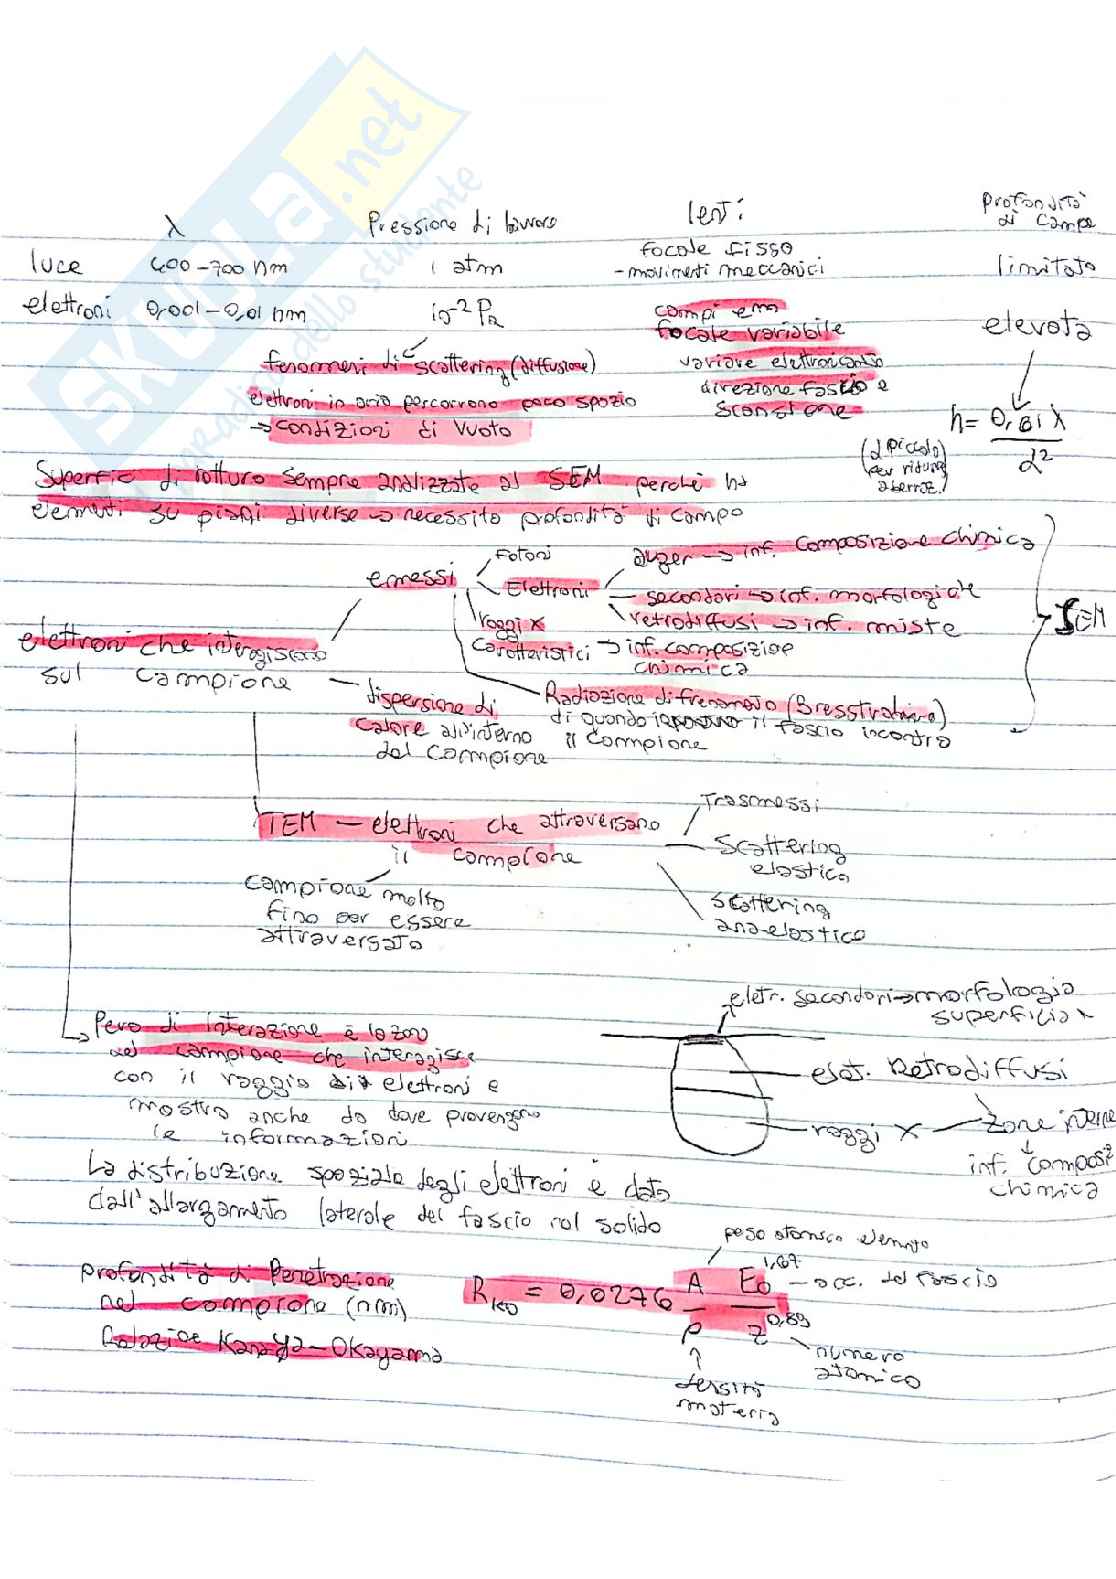 SKUOLA.net
il paradiso dello studente
λ Pressione di lavoro lenti profondità
di campo
luce 400-700 nm 1 atm focale fissa limitato
- movimenti meccanici
elettroni 0,001-0,01 nm 10⁻² Pa campi em elevata
focale variabile
fenomeni di scattering (diffusione) variare elettronicam
elettroni in aria percorrono poco spazio direzione fascio e
→ condizioni di vuoto scansione
h = 0,61 λ / d²
(d piccolo
per ridurre
aberraz.)
Superfic di rottura sempre analizzate al SEM perchè ha
elementi su piani diverse → necessita profondità di campo
Fotoni
emessi Elettroni auger → inf. composizione chimica
secondari → inf. morfologiche
retrodiffusi → inf. miste
SEM
raggi x
caratteristici → inf. composizione
chimica
elettroni che interagiscono
sul campione
Radiazione di frenamento
di quando il fascio incontra
il campione
dispersione di
calore all'interno
del campione
TEM — elettroni che attraversano
il campione
trasmessi
scattering
elastico
scattering
anaelastico
campione molto
fino per essere
attraversato
Pera di interazione è la zona
del campione che interagisce
con il raggio di elettroni e
mostra anche da dove provengono
le informazioni
eletr. secondari → morfologia
superficiax
elet. Retrodiffusi
raggi x — zone interne
inf. composiz
chimica
La distribuzione spaziale degli elettroni è data
dall'allargamento laterale del fascio nel solido
profondità di Penetrazione
nel campione (nm)
Relazione Kanaya-Okayama
R_KO = 0,0276 A/ρ E₀^1,67/Z^0,89
peso atomico elemento
acc. del fascio
numero
atomico
densità
materia